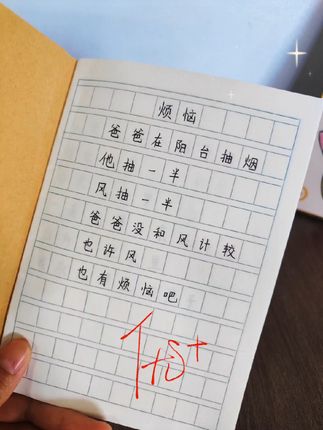 烦恼
爸爸在阳台抽烟
他抽一半
风抽一半
爸爸没和风计较
也许风
也有烦恼吧
优+